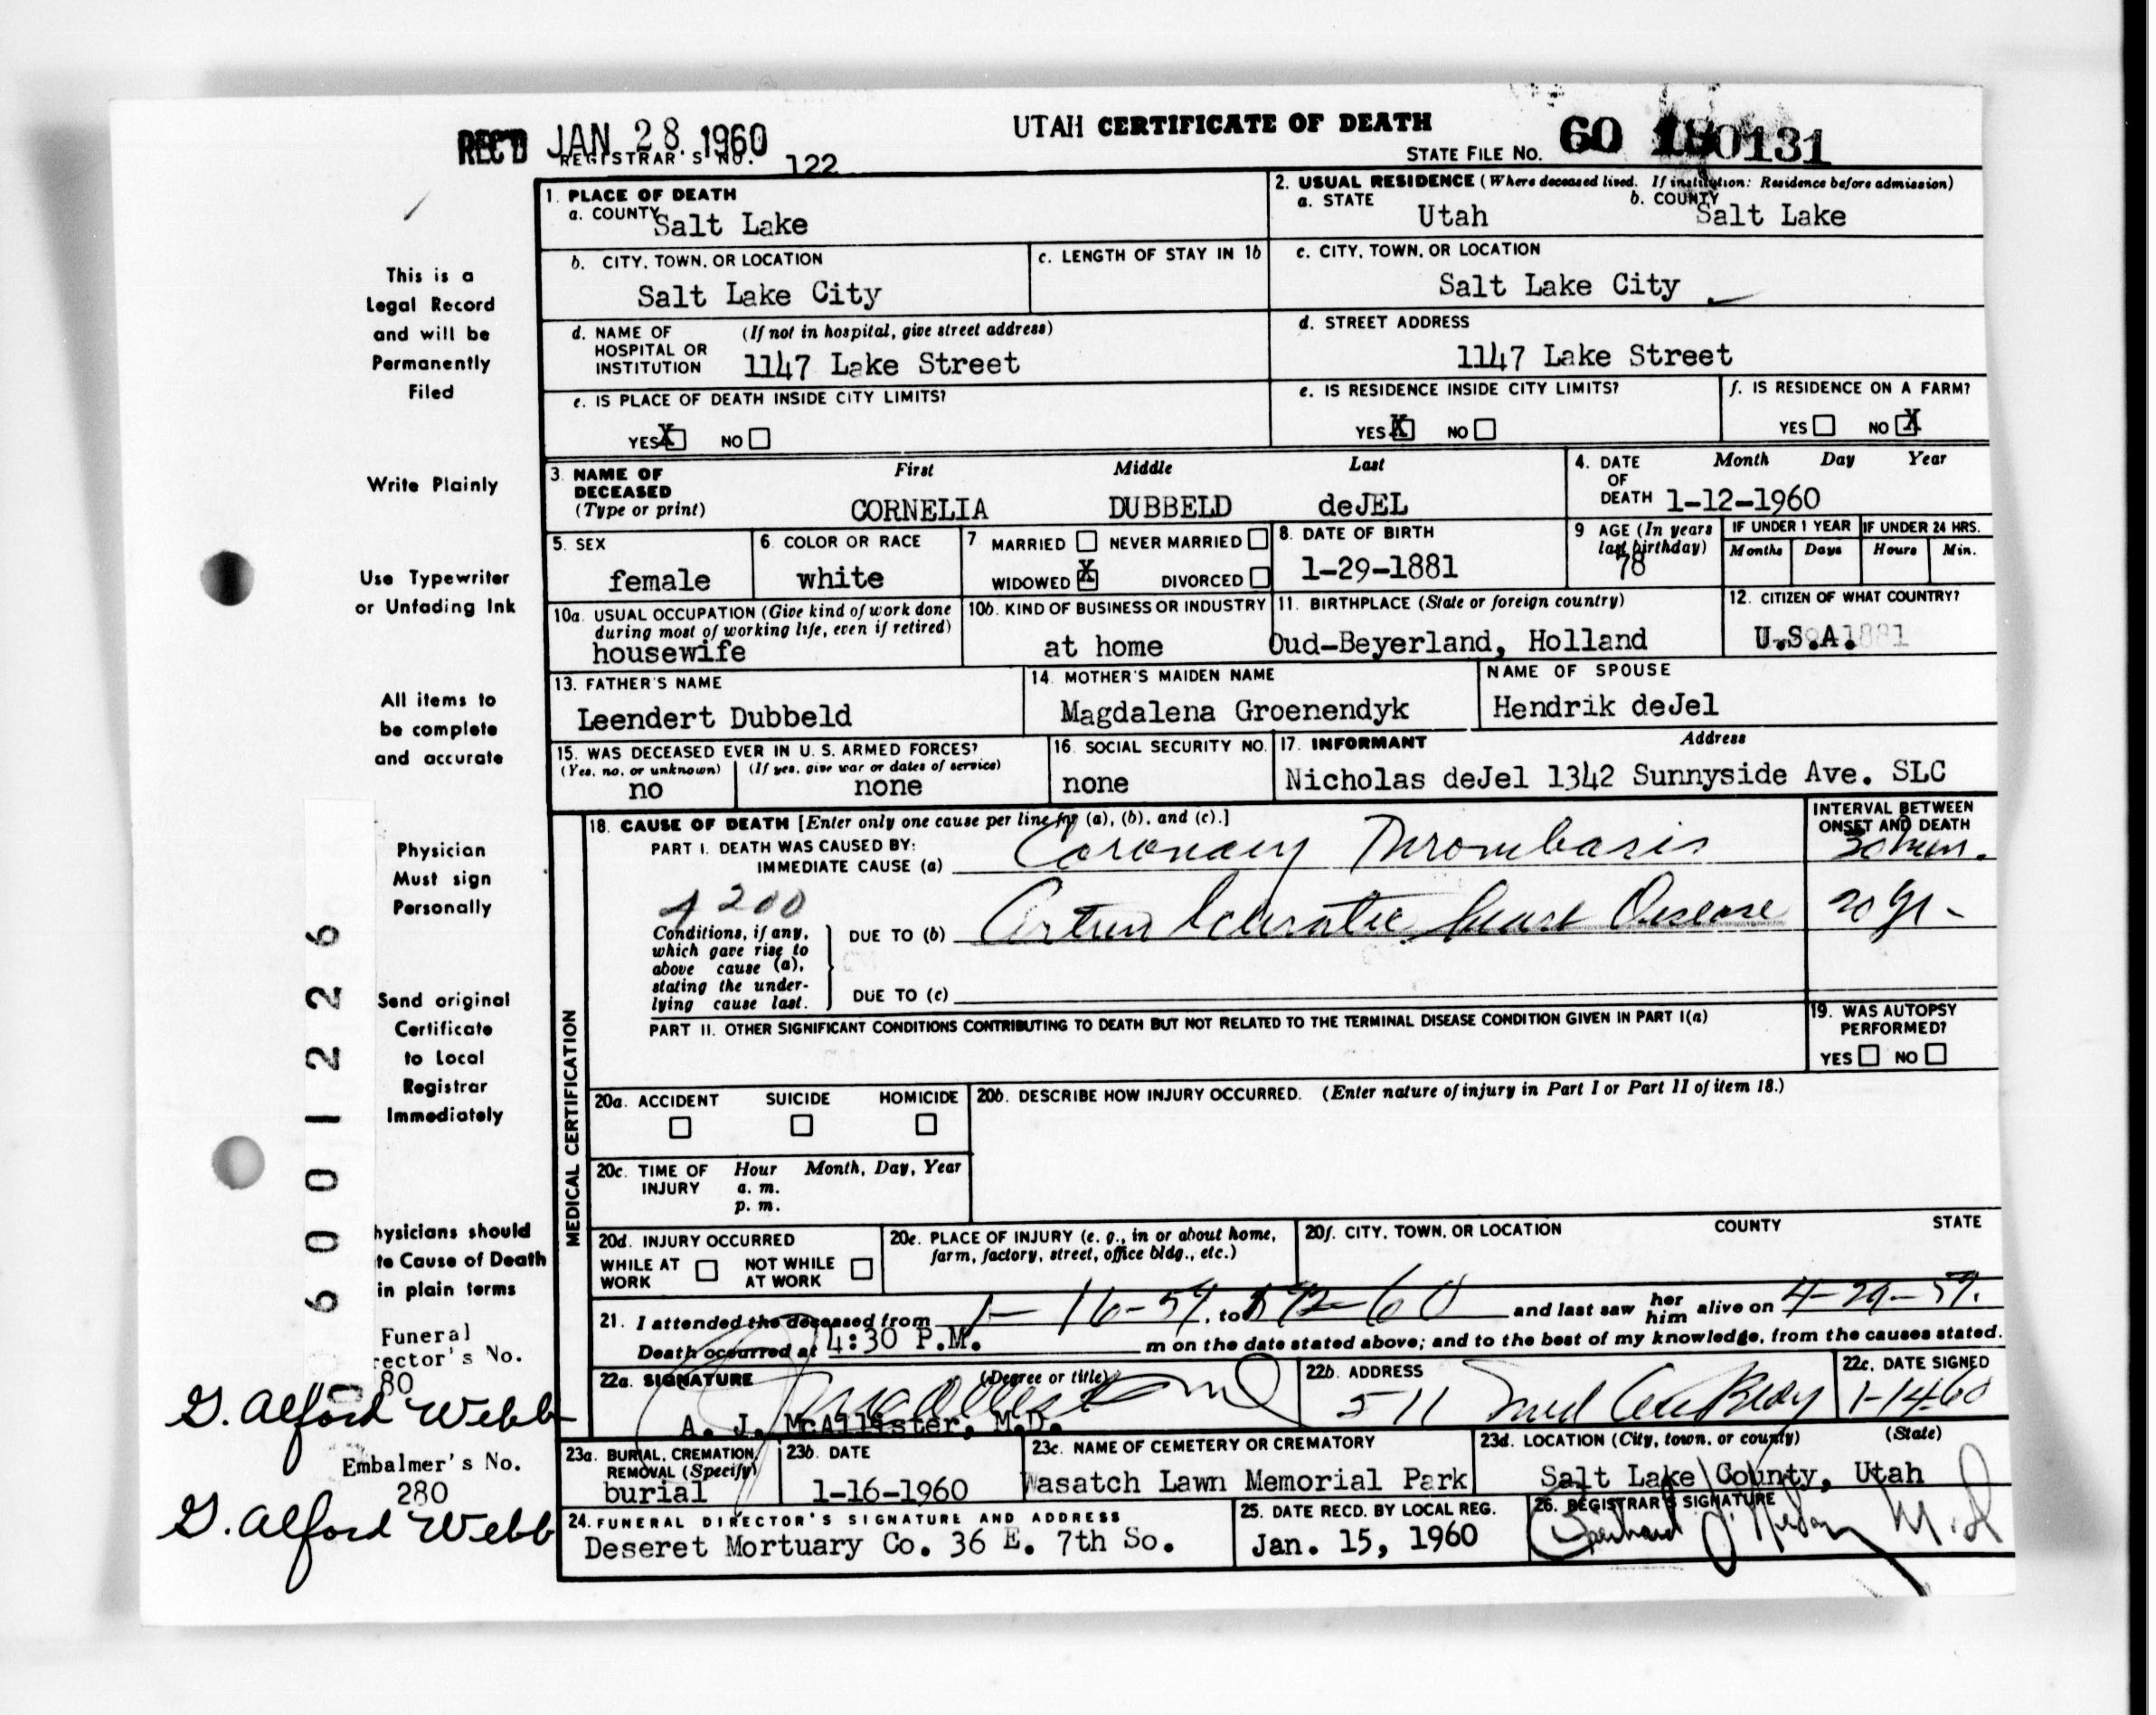 REC'D JAN 28. 1960
UTAH CERTIFICATE OF DEATH
REGISTRAR'S NO. 122
STATE FILE NO. 60 180131
This is a
Legal Record
and will be
Permanently
Filed
Write Plainly
Use Typewriter
or Unfading Ink
All items to
be complete
and accurate
Physician
Must sign
Personally
Send original
Certificate
to Local
Registrar
Immediately
hysicians should
te Cause of Death
in plain terms
Funeral
rector's No.
80
G. Alford Webb
Embalmer's No.
280
G. Alford Webb
6001226
1. PLACE OF DEATH
a. COUNTY Salt Lake
b. CITY, TOWN, OR LOCATION
Salt Lake City
c. LENGTH OF STAY IN 1b
d. NAME OF HOSPITAL OR INSTITUTION (If not in hospital, give street address)
1147 Lake Street
e. IS PLACE OF DEATH INSIDE CITY LIMITS?
YES X NO
2. USUAL RESIDENCE (Where deceased lived. If institution: Residence before admission)
a. STATE Utah b. COUNTY Salt Lake
c. CITY, TOWN, OR LOCATION
Salt Lake City
d. STREET ADDRESS
1147 Lake Street
e. IS RESIDENCE INSIDE CITY LIMITS?
YES X NO
f. IS RESIDENCE ON A FARM?
YES NO X
3. NAME OF DECEASED (Type or print) First Middle Last
CORNELIA DUBBELD deJEL
4. DATE OF DEATH Month Day Year
1-12-1960
5. SEX
female
6. COLOR OR RACE
white
7 MARRIED NEVER MARRIED
WIDOWED X DIVORCED
8. DATE OF BIRTH
1-29-1881
9 AGE (In years last birthday)
78
IF UNDER 1 YEAR IF UNDER 24 HRS.
Months Days Hours Min.
10a. USUAL OCCUPATION (Give kind of work done during most of working life, even if retired)
housewife
10b. KIND OF BUSINESS OR INDUSTRY
at home
11. BIRTHPLACE (State or foreign country)
Oud-Beyerland, Holland
12. CITIZEN OF WHAT COUNTRY?
U.S.A. 1881
13. FATHER'S NAME
Leendert Dubbeld
14. MOTHER'S MAIDEN NAME
Magdalena Groenendyk
NAME OF SPOUSE
Hendrik deJel
15. WAS DECEASED EVER IN U. S. ARMED FORCES?
(Yes, no, or unknown) (If yes, give war or dates of service)
no none
16. SOCIAL SECURITY NO.
none
17. INFORMANT Address
Nicholas deJel 1342 Sunnyside Ave. SLC
MEDICAL CERTIFICATION
18. CAUSE OF DEATH [Enter only one cause per line for (a), (b), and (c).]
INTERVAL BETWEEN ONSET AND DEATH
PART I. DEATH WAS CAUSED BY:
IMMEDIATE CAUSE (a) Coronary Thrombosis
4200
Conditions, if any, which gave rise to above cause (a), stating the underlying cause last.
DUE TO (b) Heart Disease 20 yr -
DUE TO (c)
PART II. OTHER SIGNIFICANT CONDITIONS CONTRIBUTING TO DEATH BUT NOT RELATED TO THE TERMINAL DISEASE CONDITION GIVEN IN PART I(a)
19. WAS AUTOPSY PERFORMED?
YES NO
20a. ACCIDENT SUICIDE HOMICIDE
20b. DESCRIBE HOW INJURY OCCURRED. (Enter nature of injury in Part I or Part II of item 18.)
20c. TIME OF INJURY Hour Month, Day, Year
a. m.
p. m.
20d. INJURY OCCURRED
WHILE AT WORK NOT WHILE AT WORK
20e. PLACE OF INJURY (e. g., in or about home, farm, factory, street, office bldg., etc.)
20f. CITY, TOWN, OR LOCATION COUNTY STATE
21. I attended the deceased from 1-16-59, to and last saw her him alive on 4-29-59.
Death occurred at 4:30 P.M. m on the date stated above; and to the best of my knowledge, from the causes stated.
22a. SIGNATURE (Degree or title)
A. J. McAllister, M.D.
22b. ADDRESS
511
22c. DATE SIGNED
1-14-60
23a. BURIAL, CREMATION, REMOVAL (Specify)
burial
23b. DATE
1-16-1960
23c. NAME OF CEMETERY OR CREMATORY
Wasatch Lawn Memorial Park
23d. LOCATION (City, town, or county) (State)
Salt Lake County, Utah
24. FUNERAL DIRECTOR'S SIGNATURE AND ADDRESS
Deseret Mortuary Co. 36 E. 7th So.
25. DATE RECD. BY LOCAL REG.
Jan. 15, 1960
26. REGISTRAR'S SIGNATURE